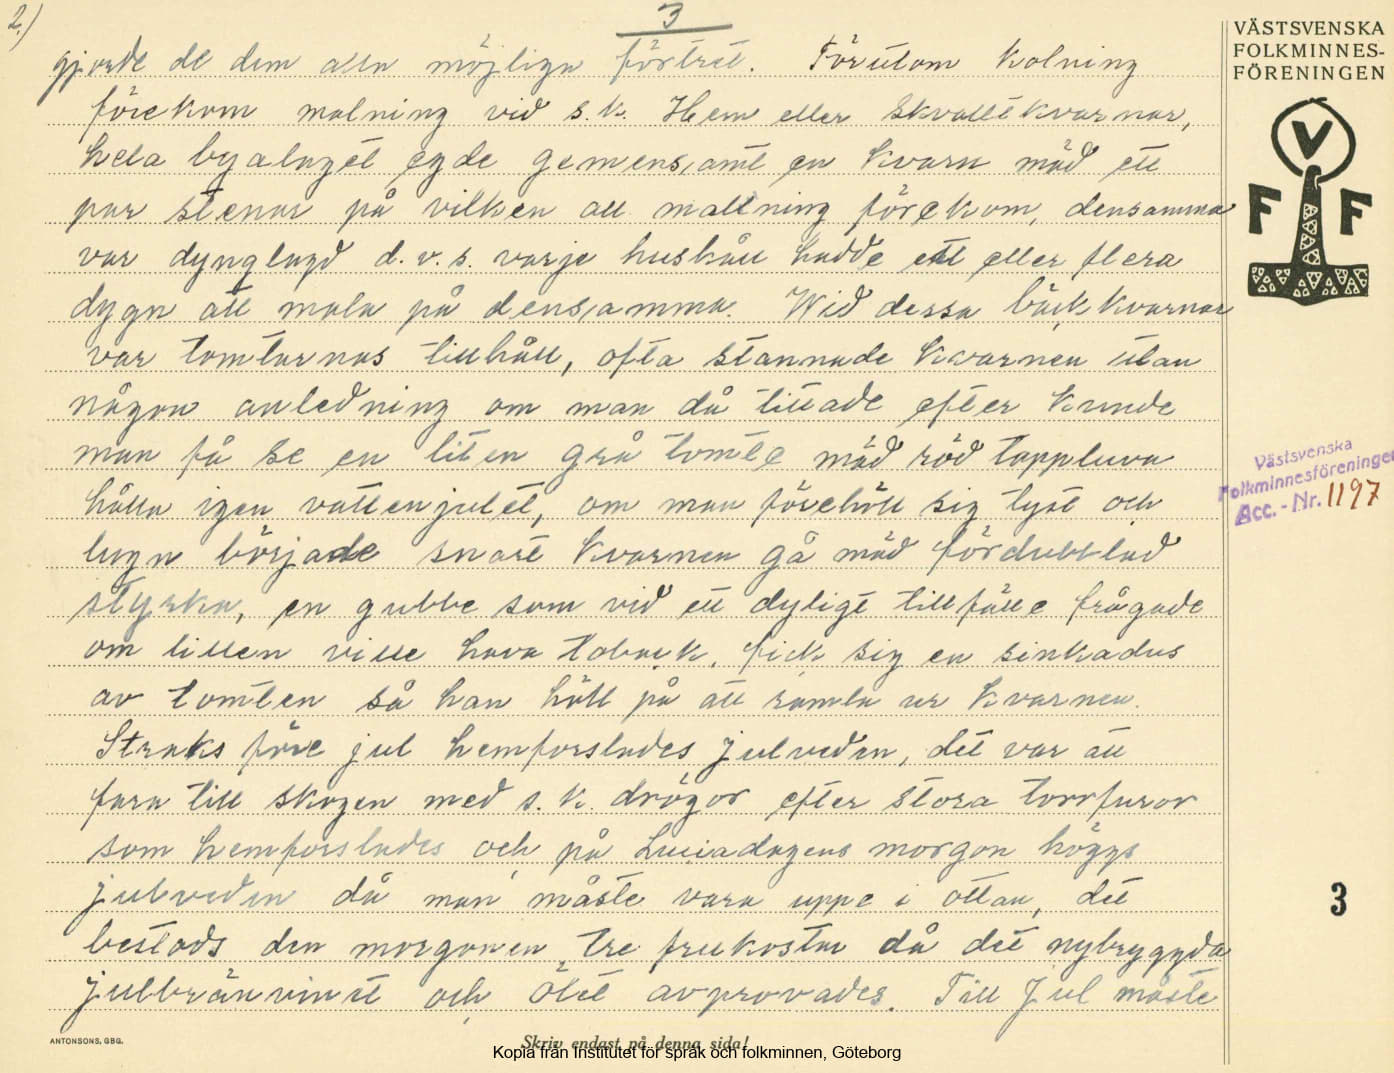 2.)
3
VÄSTSVENSKA
FOLKMINNES-
FÖRENINGEN
V
F F
gjorde de dem alla möjliga förtret. Förutom kolning
förekom malning vid s.k. Hem eller Skvaltkvarnar,
hela byalaget egde gemensamt en kvarn mäd ett
par stenar på vilken all maltning förekom, densamma
var dynglagd d.v.s. varje hushåll hadde ett eller flera
dygn att mala på densamma. Wid dessa bäckkvarnar
var tomtarnas tillhåll, ofta stannade kvarnen utan
någon anledning om man då tittade efter kunde
man få se en liten grå tomte mäd röd toppluva
hålla igen vattenjulet, om man förehöll sig tyst och
lugn började snart kvarnen gå mäd fördubblad
styrka, en gubbe som vid ett dyligt tillfälle frågade
om liten ville hava toback, fick sig en sinkadus
av tomten så han höll på att ramla ur kvarnen.
Straks före jul hemforslades julveden, det var att
fara till skogen med s.k. drögor efter stora torrfuror
som hemforslades och på Luciadagens morgon höggs
julveden då man måste vara uppe i ottan, det
bestods den morgonen tre frukostar då det nybryggda
julbrännvinet och ölet avprovades. Till Jul måste
Västsvenska
Folkminnesföreningen
Acc.-Nr. 1197
3
ANTONSONS, GBG.
Skriv endast på denna sida!
Kopia från Institutet för språk och folkminnen, Göteborg